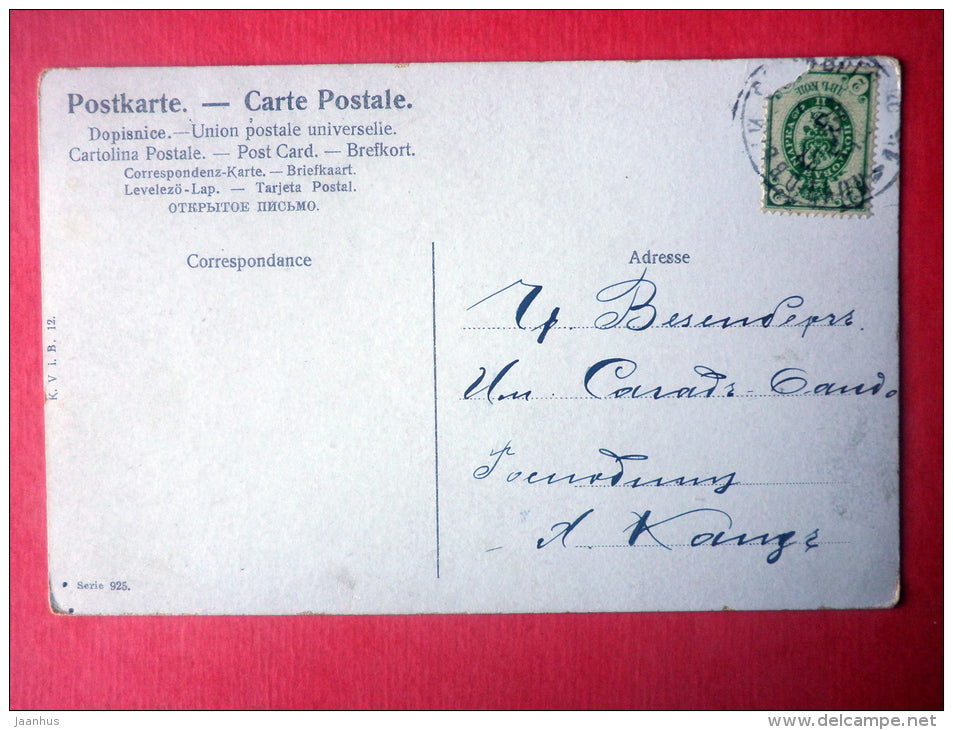 Postkarte. — Carte Postale.
Dopisnice.—Union postale universelle.
Cartolina Postale. — Post Card. — Brefkort.
Correspondenz-Karte. — Briefkaart.
Levelező-Lap. — Tarjeta Postal.
ОТКРЫТОЕ ПИСЬМО.
Correspondance
Adresse
Чр. Везенбергъ
Им. Сагадъ
Господину
Я. Кандъ
K. V i. B. 12.
Serie 925.
2
ДВѢ КОП.
ПОЧТОВАЯ МАРКА
Jaanhus
www.delcampe.net